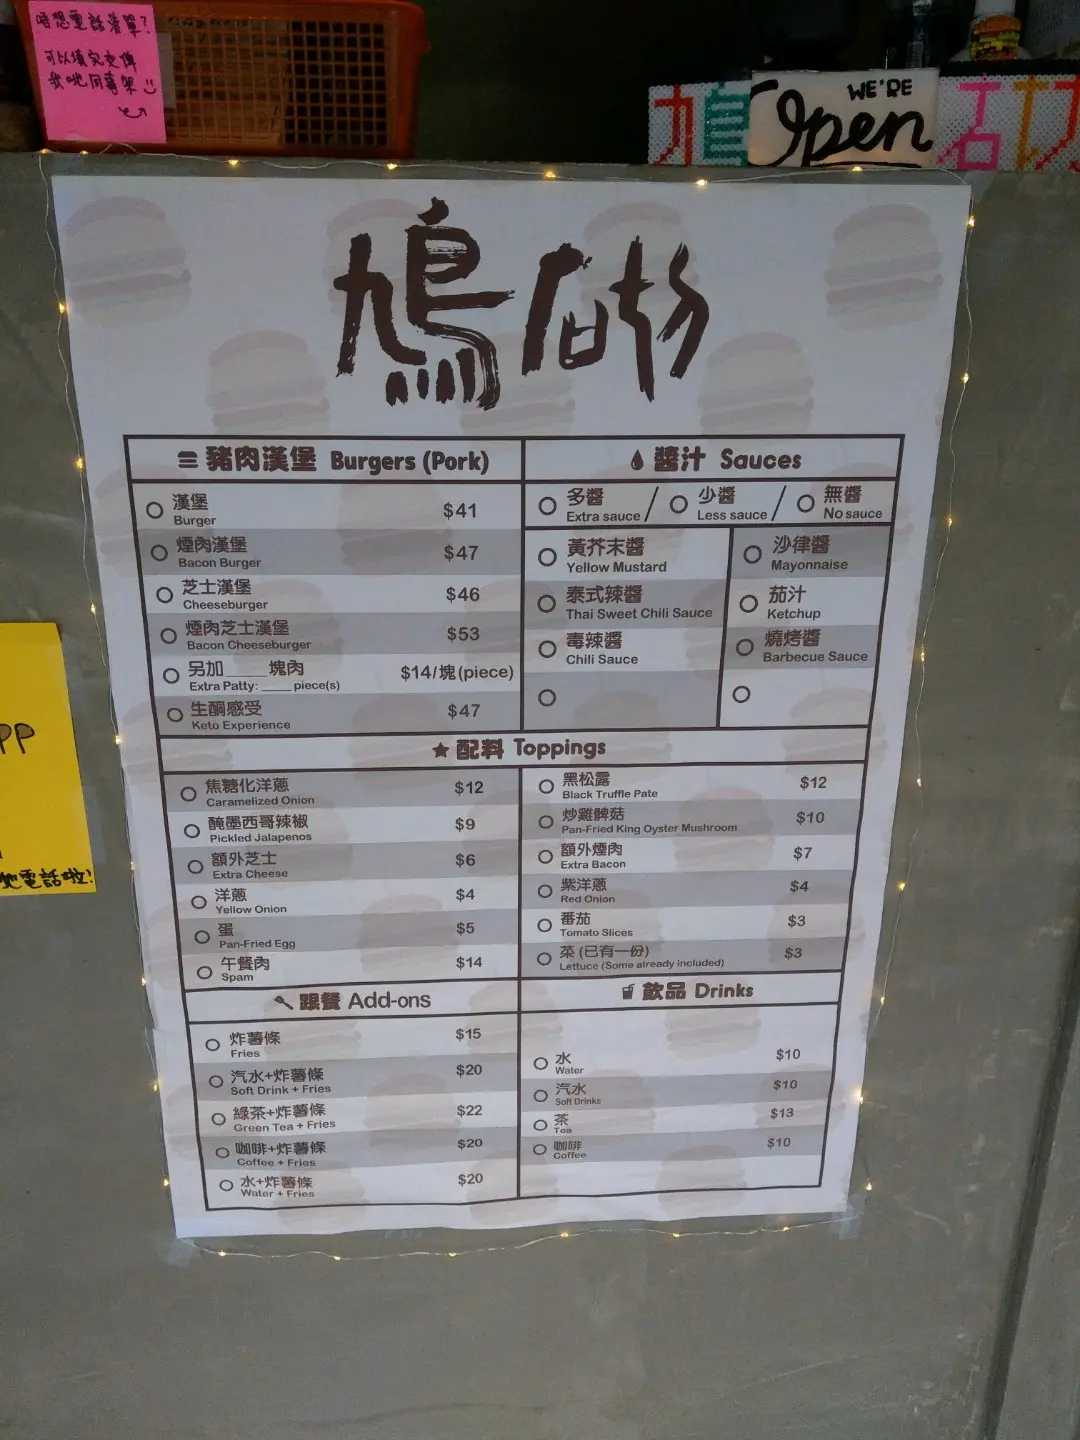 唔想電話落單?
可以填完交俾
我哋同事架
WE'RE
Open
鳩
豬肉漢堡 Burgers (Pork)
漢堡 $41
Burger
煙肉漢堡 $47
Bacon Burger
芝士漢堡 $46
Cheeseburger
煙肉芝士漢堡 $53
Bacon Cheeseburger
另加____塊肉 $14/塊(piece)
Extra Patty: ____ piece(s)
生酮感受 $47
Keto Experience
醬汁 Sauces
多醬 / 少醬 / 無醬
Extra sauce / Less sauce / No sauce
黃芥末醬
Yellow Mustard
泰式辣醬
Thai Sweet Chili Sauce
毒辣醬
Chili Sauce
沙律醬
Mayonnaise
茄汁
Ketchup
燒烤醬
Barbecue Sauce
配料 Toppings
焦糖化洋蔥 $12
Caramelized Onion
醃墨西哥辣椒 $9
Pickled Jalapenos
額外芝士 $6
Extra Cheese
洋蔥 $4
Yellow Onion
蛋 $5
Pan-Fried Egg
午餐肉 $14
Spam
黑松露 $12
Black Truffle Pate
炒雞髀菇 $10
Pan-Fried King Oyster Mushroom
額外煙肉 $7
Extra Bacon
紫洋蔥 $4
Red Onion
番茄 $3
Tomato Slices
菜 (已有一份) $3
Lettuce (Some already included)
跟餐 Add-ons
炸薯條 $15
Fries
汽水+炸薯條 $20
Soft Drink + Fries
綠茶+炸薯條 $22
Green Tea + Fries
咖啡+炸薯條 $20
Coffee + Fries
水+炸薯條 $20
Water + Fries
飲品 Drinks
水 $10
Water
汽水 $10
Soft Drinks
茶 $13
Tea
咖啡 $10
Coffee
電話啦!